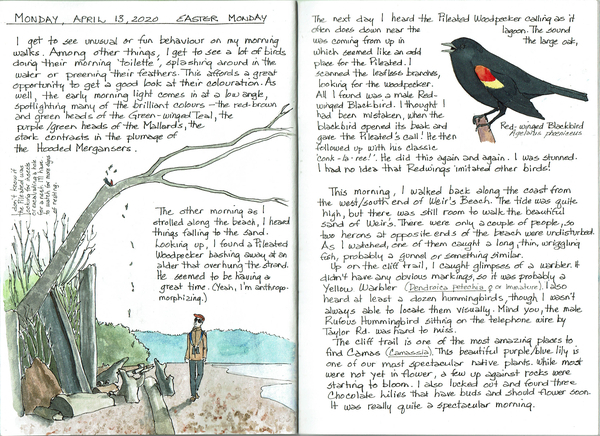 MONDAY, APRIL 13, 2020 EASTER MONDAY
I get to see unusual or fun behaviour on my morning
walks. Among other things, I get to see a lot of birds
doing their morning 'toilette', splashing around in the
water or preening their feathers. This affords a great
opportunity to get a good look at their colouration. As
well, the early morning light comes in at a low angle,
spotlighting many of the brilliant colours – the red-brown
and green heads of the Green-winged Teal, the
purple/green heads of the Mallards, the
stark contrasts in the plumage of
the Hooded Mergansers.
I don't know if
the Pileated was
searching for insects
or excavating a hole
for a nest. I'll have
to watch for more signs
of nesting.
The other morning as I
strolled along the beach, I heard
things falling to the sand.
Looking up, I found a Pileated
Woodpecker bashing away at an
alder that overhung the strand.
He seemed to be having a
great time. (Yeah, I'm anthropo-
morphizing.)
The next day I heard the Pileated Woodpecker calling as it
often does down near the lagoon. The sound
was coming from up in the large oak,
which seemed like an odd
place for the Pileated. I
scanned the leafless branches,
looking for the woodpecker.
All I found was a male Red-
winged Blackbird. I thought I
had been mistaken, when the
blackbird opened its beak and
gave the Pileated's call! He then
followed up with his classic
'conk-la-ree!'. He did this again and again. I was stunned.
I had no idea that Redwings imitated other birds!
Red-winged Blackbird
Agelaius phoeniceus
This morning, I walked back along the coast from
the west/south end of Weir's Beach. The tide was quite
high, but there was still room to walk the beautiful
sand of Weir's. There were only a couple of people, so
two herons at opposite ends of the beach were undisturbed.
As I watched, one of them caught a long, thin, wriggling
fish, probably a gunnel or something similar.
Up on the cliff trail, I caught glimpses of a warbler. It
didn't have any obvious markings, so it was probably a
Yellow Warbler (Dendroica petechia ♀ or immature). I also
heard at least a dozen hummingbirds, though I wasn't
always able to locate them visually. Mind you, the male
Rufous Hummingbird sitting on the telephone wire by
Taylor Rd. was hard to miss.
The cliff trail is one of the most amazing places to
find Camas (Camassia). This beautiful purple/blue lily is
one of our most spectacular native plants. While most
were not yet in flower, a few up against rocks were
starting to bloom. I also lucked out and found three
Chocolate lilies that have buds and should flower soon.
It was really quite a spectacular morning.